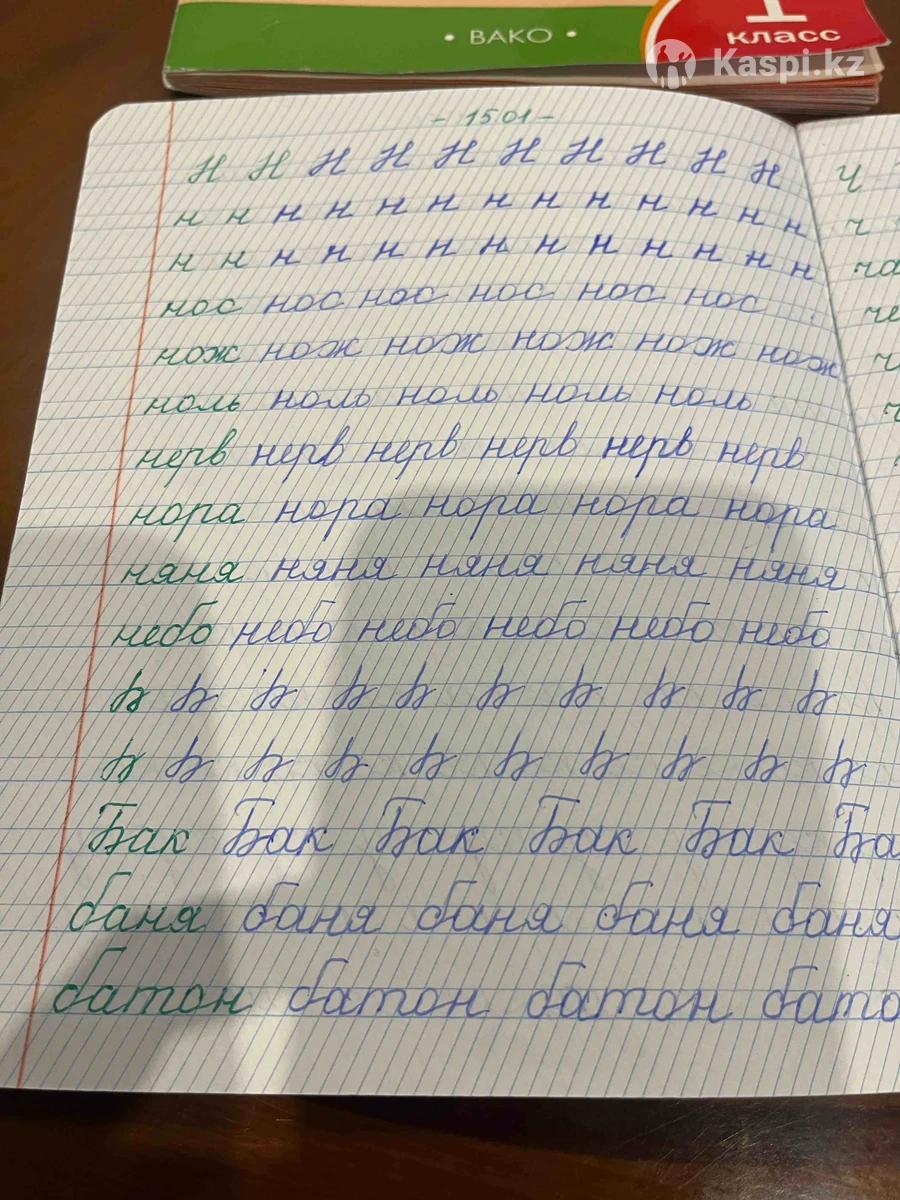 1
• ВАКО •
класс
Kaspi.kz
- 15.01 -
Н Н Н Н Н Н Н Н Н Н
н н н н н н н н н н н н н
н н н н н н н н н н н н н
нос нос нос нос нос нос
нож нож нож нож нож нож
ноль ноль ноль ноль ноль
нерв нерв нерв нерв нерв нерв
нора нора нора нора нора
няня няня няня няня няня
небо небо небо небо небо небо
Бак Бак Бак Бак Бак Ба
баня баня баня баня баня
батон батон батон бато
Ч
ч
ча
че
ч
ч